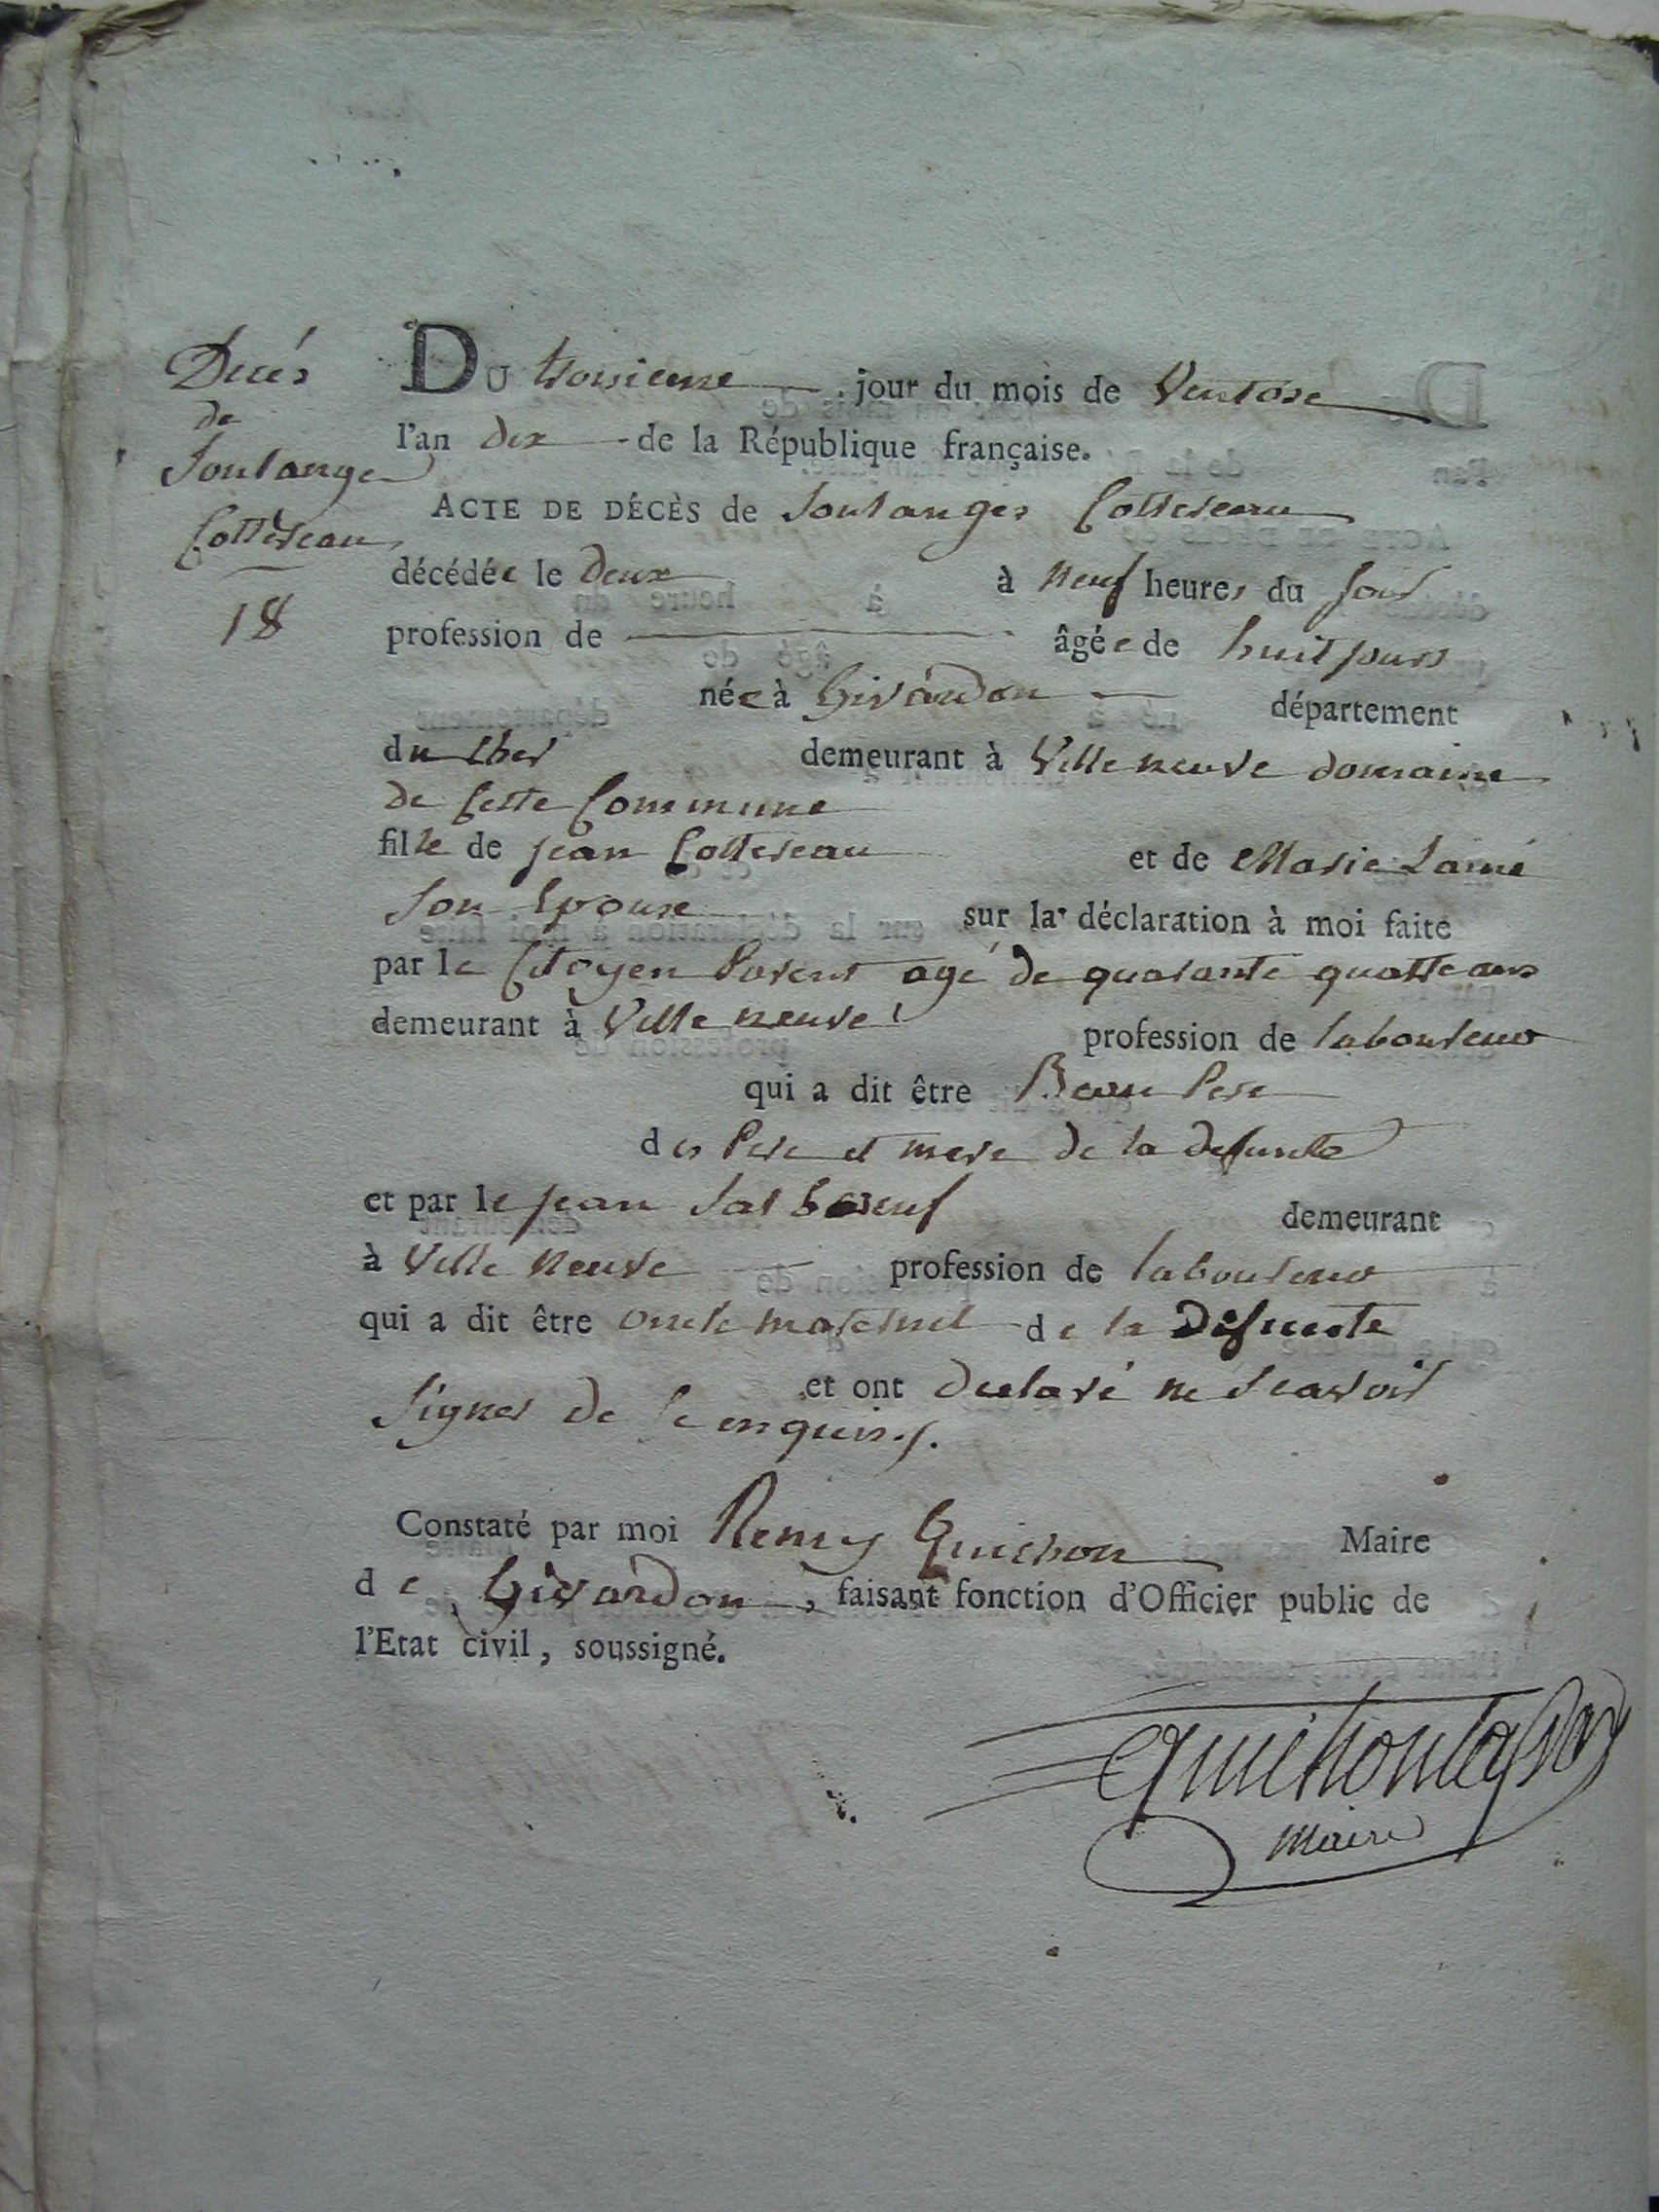 Decés
de
Soulange
Cottereau
18
DU troisieme jour du mois de Ventose
l'an dix de la République française.
ACTE DE DÉCÈS de Soulanges Cottereau
décédée le deux à neuf heures du soir
profession de âgée de huit jours
née à Givardon département
du Cher demeurant à Ville neuve domaine
de Cette Commune
fille de jean Cottereau et de Marie Lamé
Son Epouse sur la déclaration à moi faite
par le Citoyen Parent agé de quarante quattre ans
demeurant à Ville neuve profession de laboureur
qui a dit être Beau Pere
des Pere et mere de la defunte
et par le jean demeurant
à Ville Neuve profession de laboureur
qui a dit être oncle maternel de la Defunte
et ont declaré ne Scavoir
Signer de Ce enquis.
Constaté par moi Remy Quichon Maire
de Givardon, faisant fonction d'Officier public de
l'Etat civil, soussigné.
maire